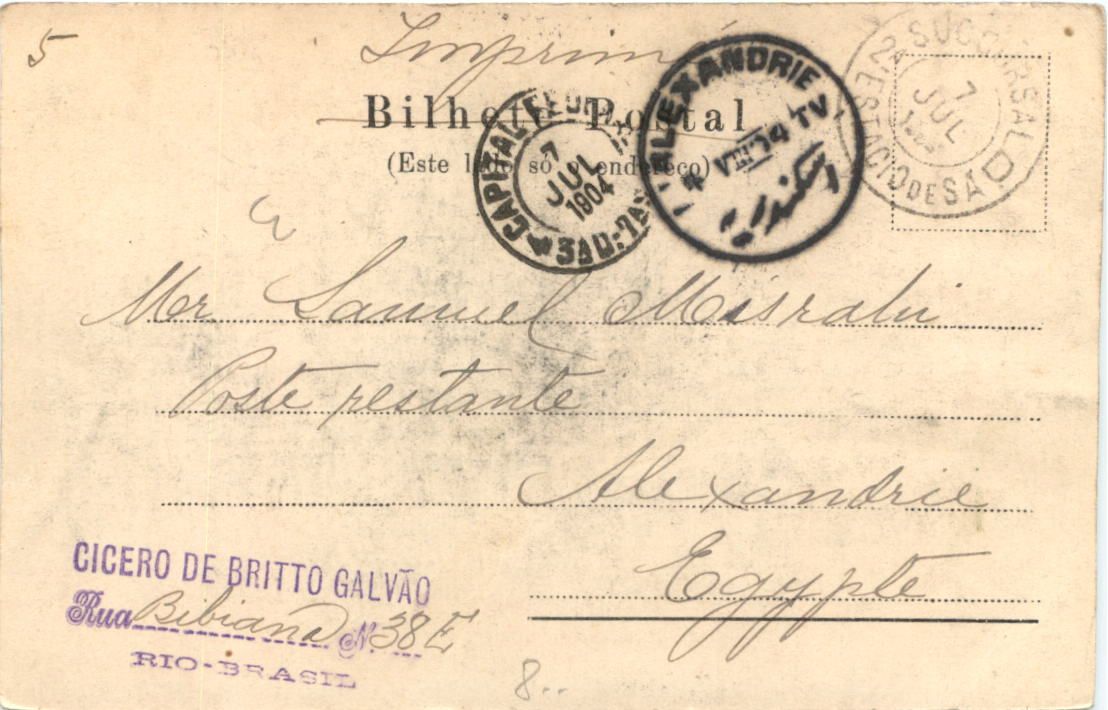 5
Imprimé
Bilhete Postal
(Este lado só o endereço)
CAPITAL FEDERAL
7
JUL
1904
ALEXANDRIE
VIII 04 TV
الاسكندرية
2ª SUCCURSAL
7
JUL
ESTACIO DE SÁ
Mr Samuel Misrahi
Poste restante
Alexandrie
Egypte
CICERO DE BRITTO GALVÃO
Rua Bibiana Nº 38 E
RIO-BRASIL
8..